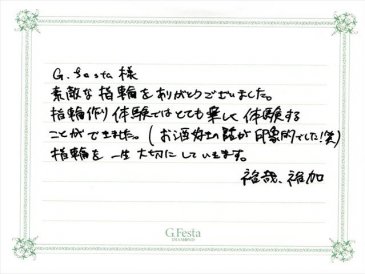 G.festa 様
素敵な指輪をありがとうございました。
指輪作り体験ではとても楽しく体験する
ことができました。(お酒好きの話が印象的でした!笑)
指輪を一生大切にしていきます。
裕哉、裕加
G.Festa